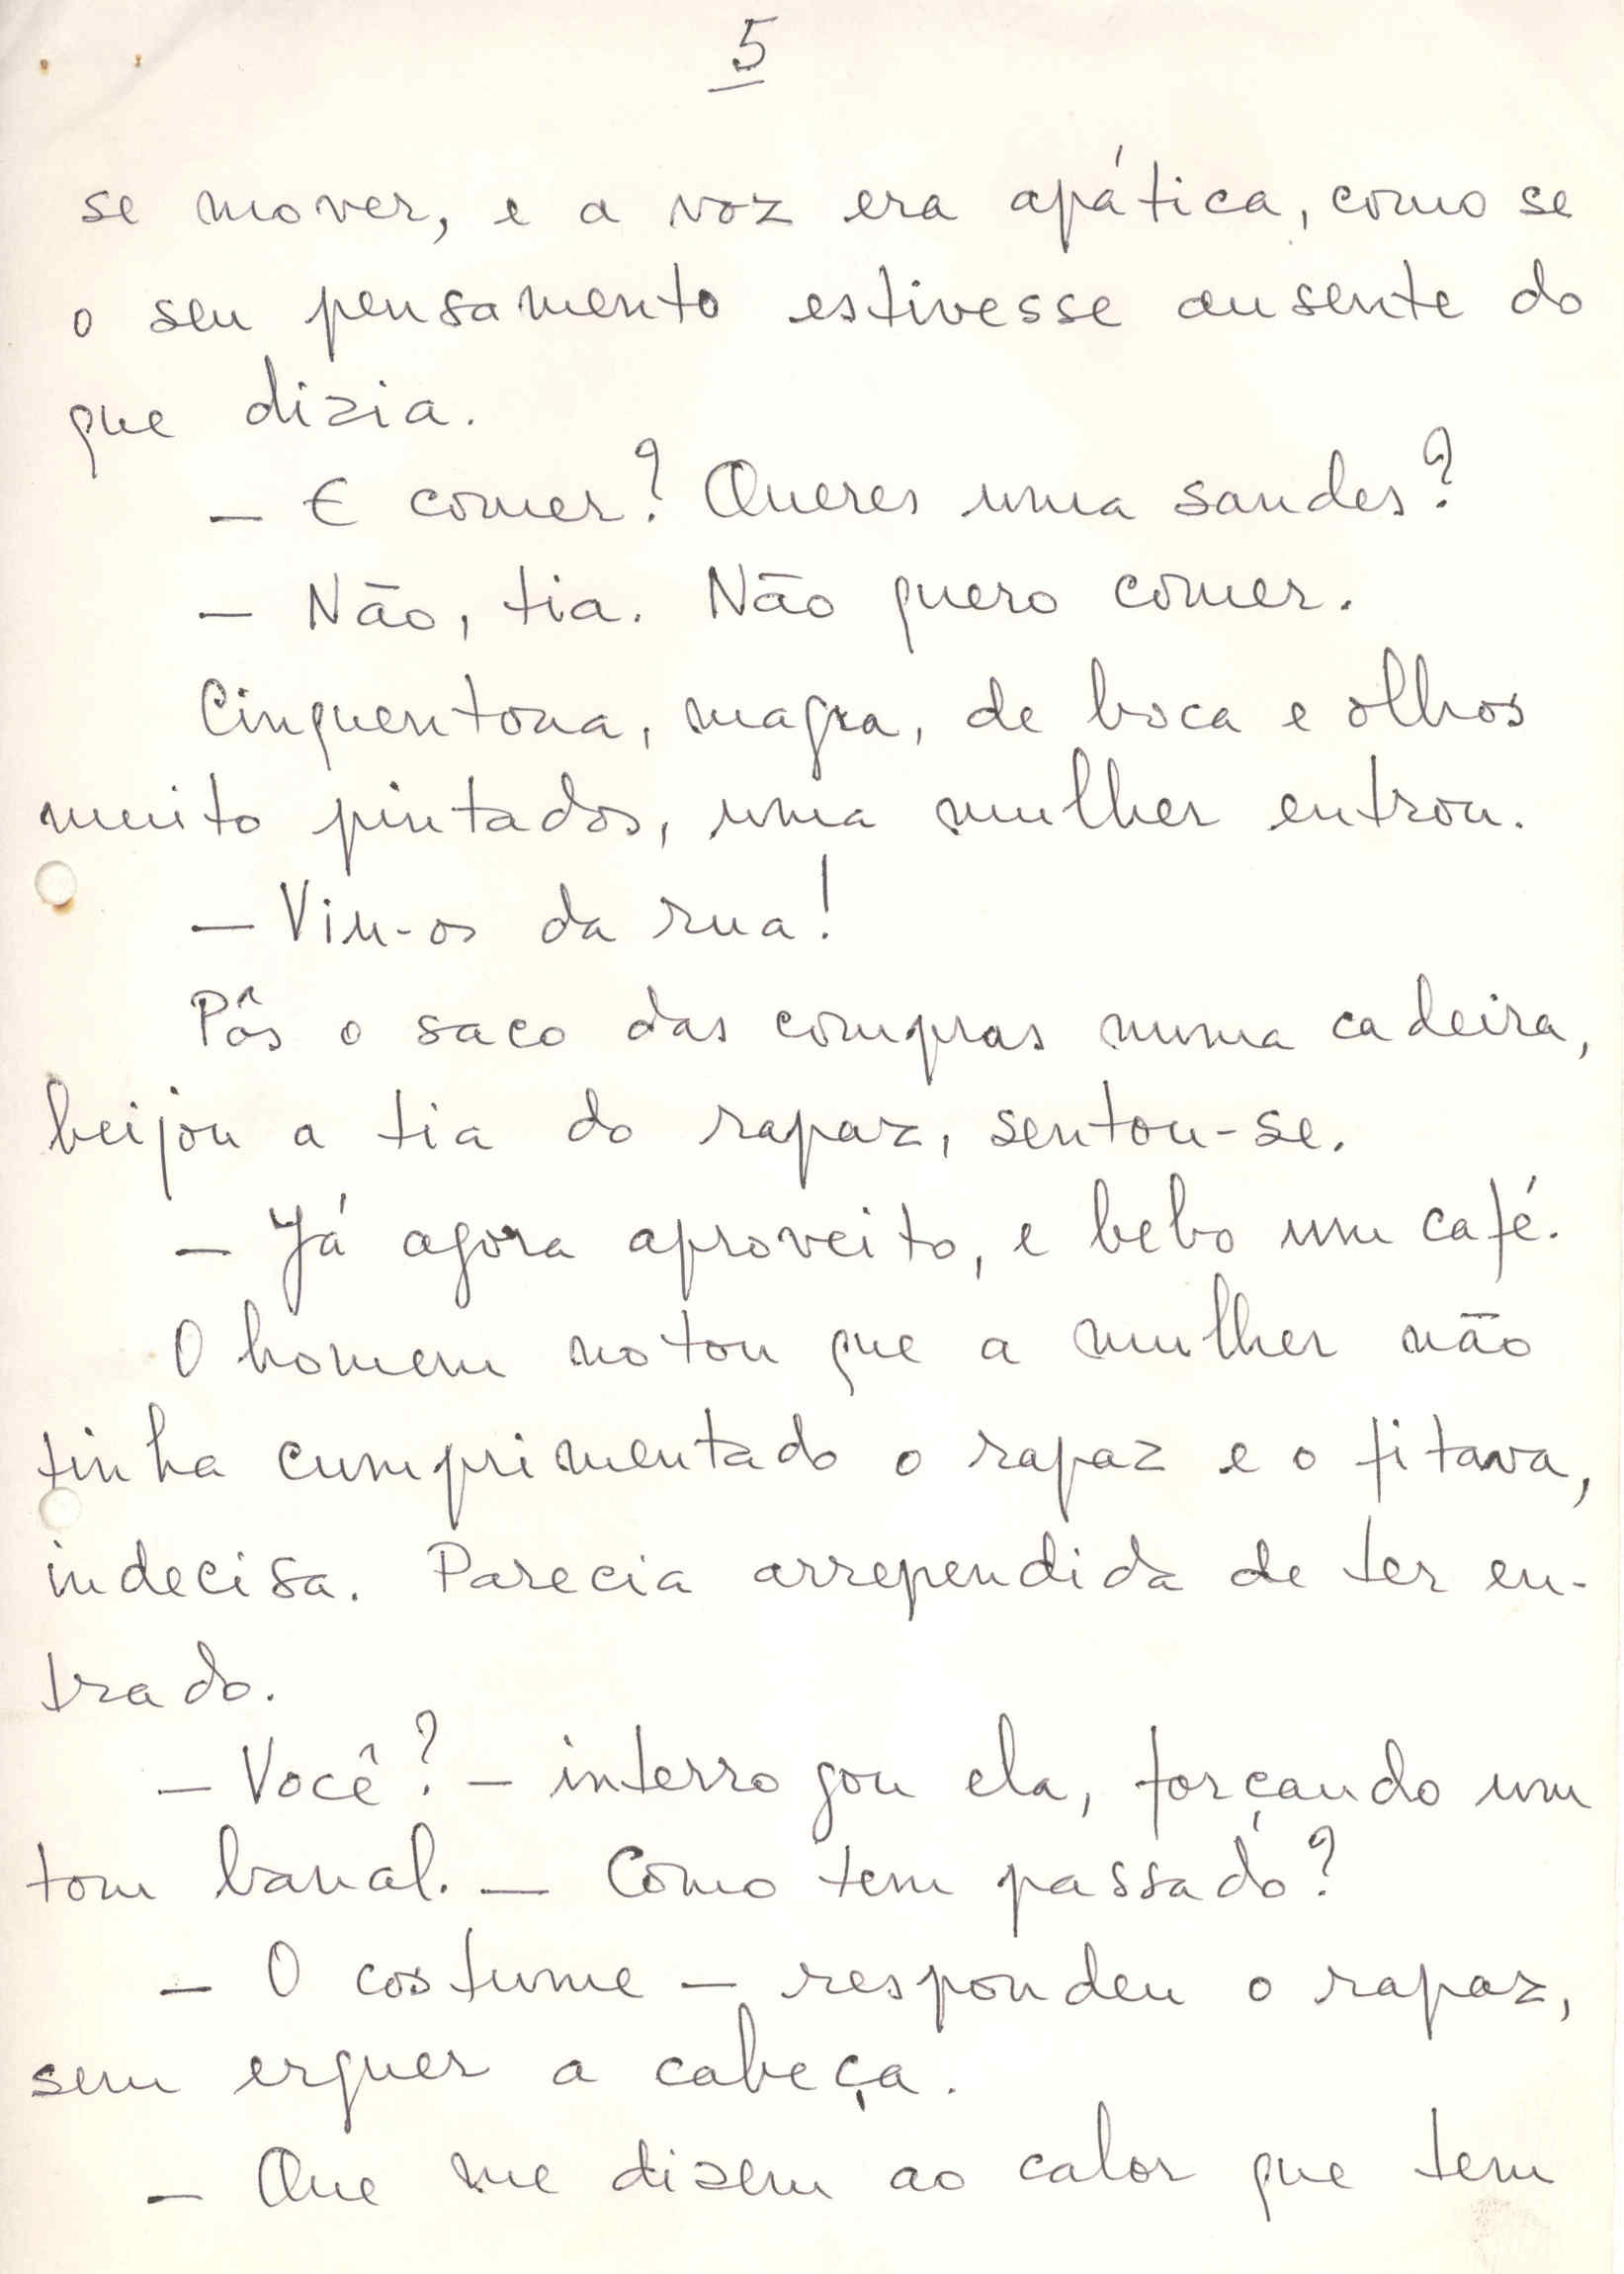 5
se mover, e a voz era apática, como se
o seu pensamento estivesse ausente do
que dizia.
— E comer? Queres uma sandes?
— Não, tia. Não quero comer.
Cinquentona, magra, de boca e olhos
muito pintados, uma mulher entrou.
— Viu-os da rua!
Pôs o saco das compras numa cadeira,
beijou a tia do rapaz, sentou-se.
— Já agora aproveito, e bebo um café.
O homem notou que a mulher não
tinha cumprimentado o rapaz e o fitava,
indecisa. Parecia arrependida de ter en-
trado.
— Você? — interrogou ela, forçando um
tom banal. — Como tem passado?
— O costume — respondeu o rapaz,
sem erguer a cabeça.
— Que me dizem ao calor que tem